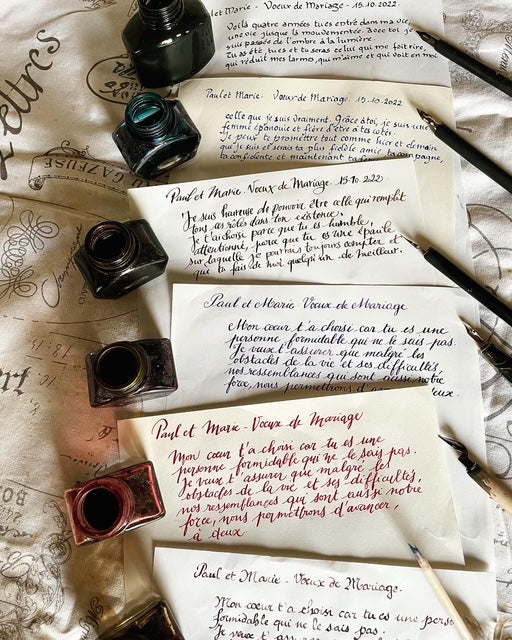 et Marie - Voeux de Mariage - 15.10.2022.
Voilà quatre années tu es entré dans ma vie,
une vie jusque là mouvementée. Avec toi je
suis passée de l'ombre à la lumière.
Tu as été, tu es et tu seras celui qui me fait rire,
qui réduit mes larmes, qui m'aime et qui voit en moi
Paul et Marie. Voeux de Mariage. 15.10.2022
celle que je suis vraiment. Grâce à toi, je suis une
femme épanouie et fière d'être à tes côtés.
Je peux te promettre tout comme hier et demain
que je suis et serais ta plus fidèle amie, ta compagne,
ta confidente et maintenant ta
Paul et Marie Voeux de Mariage. 15.10.2022
Je suis heureuse de pouvoir être celle qui remplit
tous ces rôles dans ton existence.
Je t'ai choisi parce que tu es humble,
attentionné, parce que tu es une épaule
sur laquelle je pourrais toujours compter et
que tu fais de moi quelqu'un de meilleur.
Paul et Marie Voeux de Mariage
Mon coeur t'a choisi car tu es une
personne formidable qui ne le sais pas.
Je veux t'assurer que malgré les
obstacles de la vie et ses difficultés,
nos ressemblances qui sont aussi notre
force, nous permettrons d'avancer à deux.
Paul et Marie - Voeux de Mariage
Mon coeur t'a choisi car tu es une
personne formidable qui ne le sais pas.
Je veux t'assurer que malgré les
obstacles de la vie et ses difficultés,
nos ressemblances qui sont aussi notre
force, nous permettrons d'avancer,
à deux
Paul et Marie - Voeux de Mariage.
Mon coeur t'a choisi car tu es une perso
formidable qui ne le sais pas.
Je veux t'assu